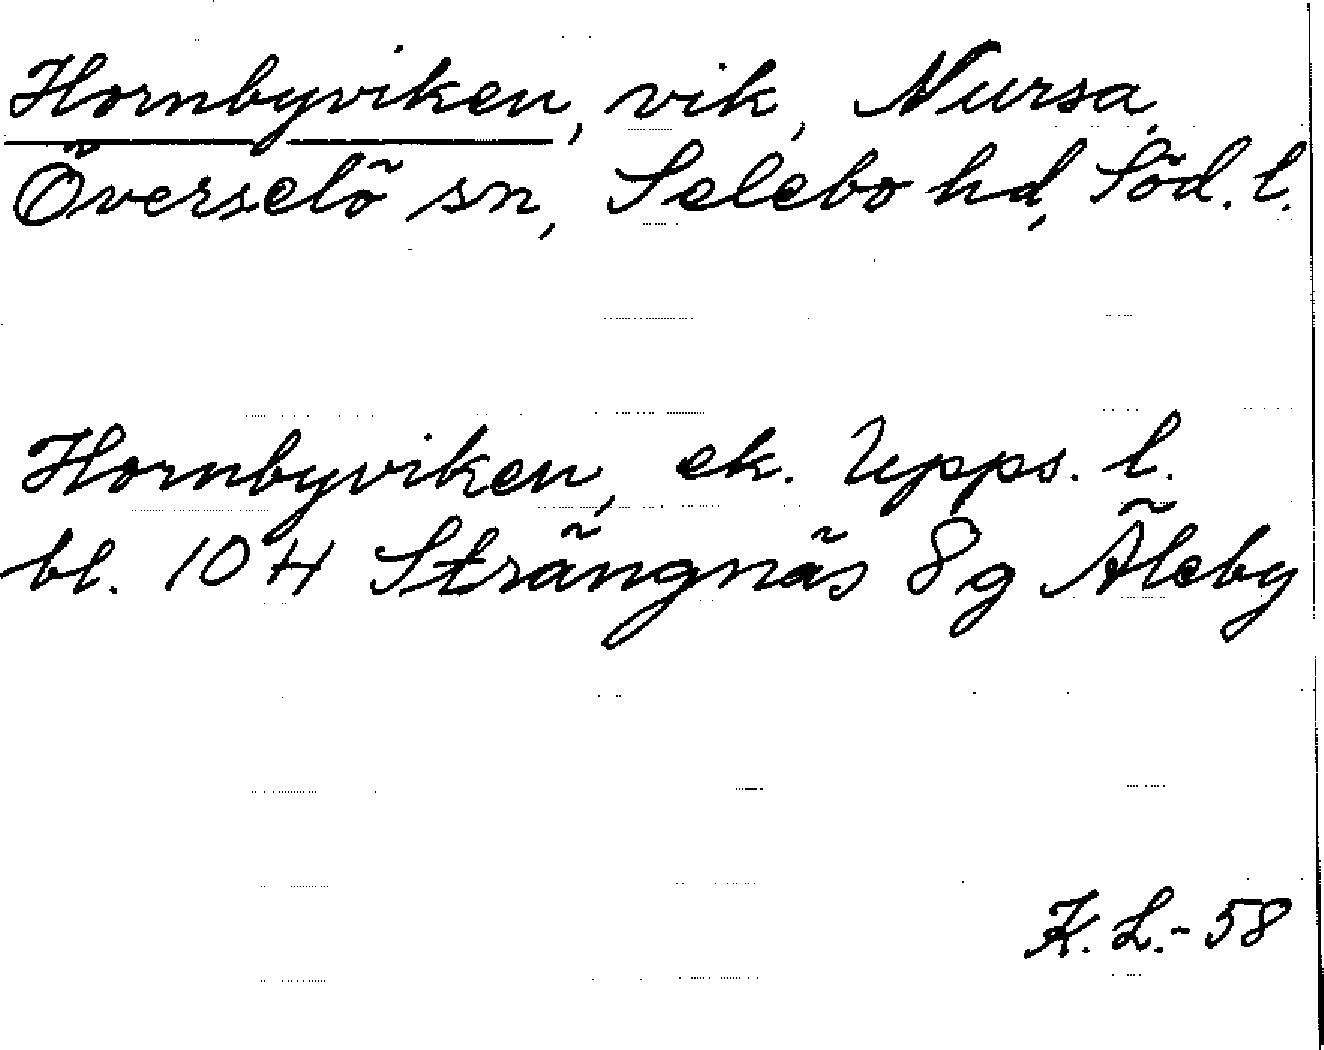 Hornbyviken, vik, Nursa,
Överselö sn, Selebo hd, Söd. l.
Hornbyviken, ek. Upps. l.
bl. 104 Strängnäs 8g Äleby
K. L. - 58